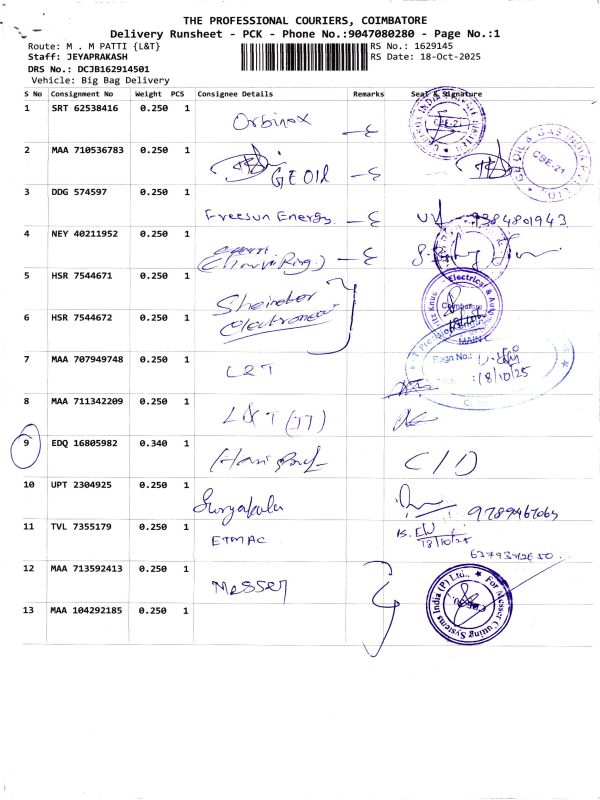 THE PROFESSIONAL COURIERS, COIMBATORE
Delivery Runsheet - PCK - Phone No.:9047080280 - Page No.:1
Route: M . M PATTI {L&T}
RS No.: 1629145
Staff: JEYAPRAKASH
RS Date: 18-Oct-2025
DRS No.: DCJB162914501
Vehicle: Big Bag Delivery
S No Consignment No Weight PCS Consignee Details Remarks Seal & Signature
1 SRT 62538416 0.250 1 Orbinox
CBE-21
2 MAA 710536783 0.250 1 GE OIL
OIL & GAS INDIA
CBE-21
3 DDG 574597 0.250 1 Freesun Energy 9384801943
4 NEY 40211952 0.250 1
5 HSR 7544671 0.250 1
Electrical &
Coimbatore
6 HSR 7544672 0.250 1 electroneer
MAIN
7 MAA 707949748 0.250 1 L&T
Regn No.:
18/10/25
8 MAA 711342209 0.250 1 L&T
9 EDQ 16805982 0.340 1 C/D
10 UPT 2304925 0.250 1 Suryakala 9789467063
11 TVL 7355179 0.250 1 ETMAC
18/10/25
12 MAA 713592413 0.250 1 Messer
For Messer Cutting Systems India (P) Ltd.,
13 MAA 104292185 0.250 1